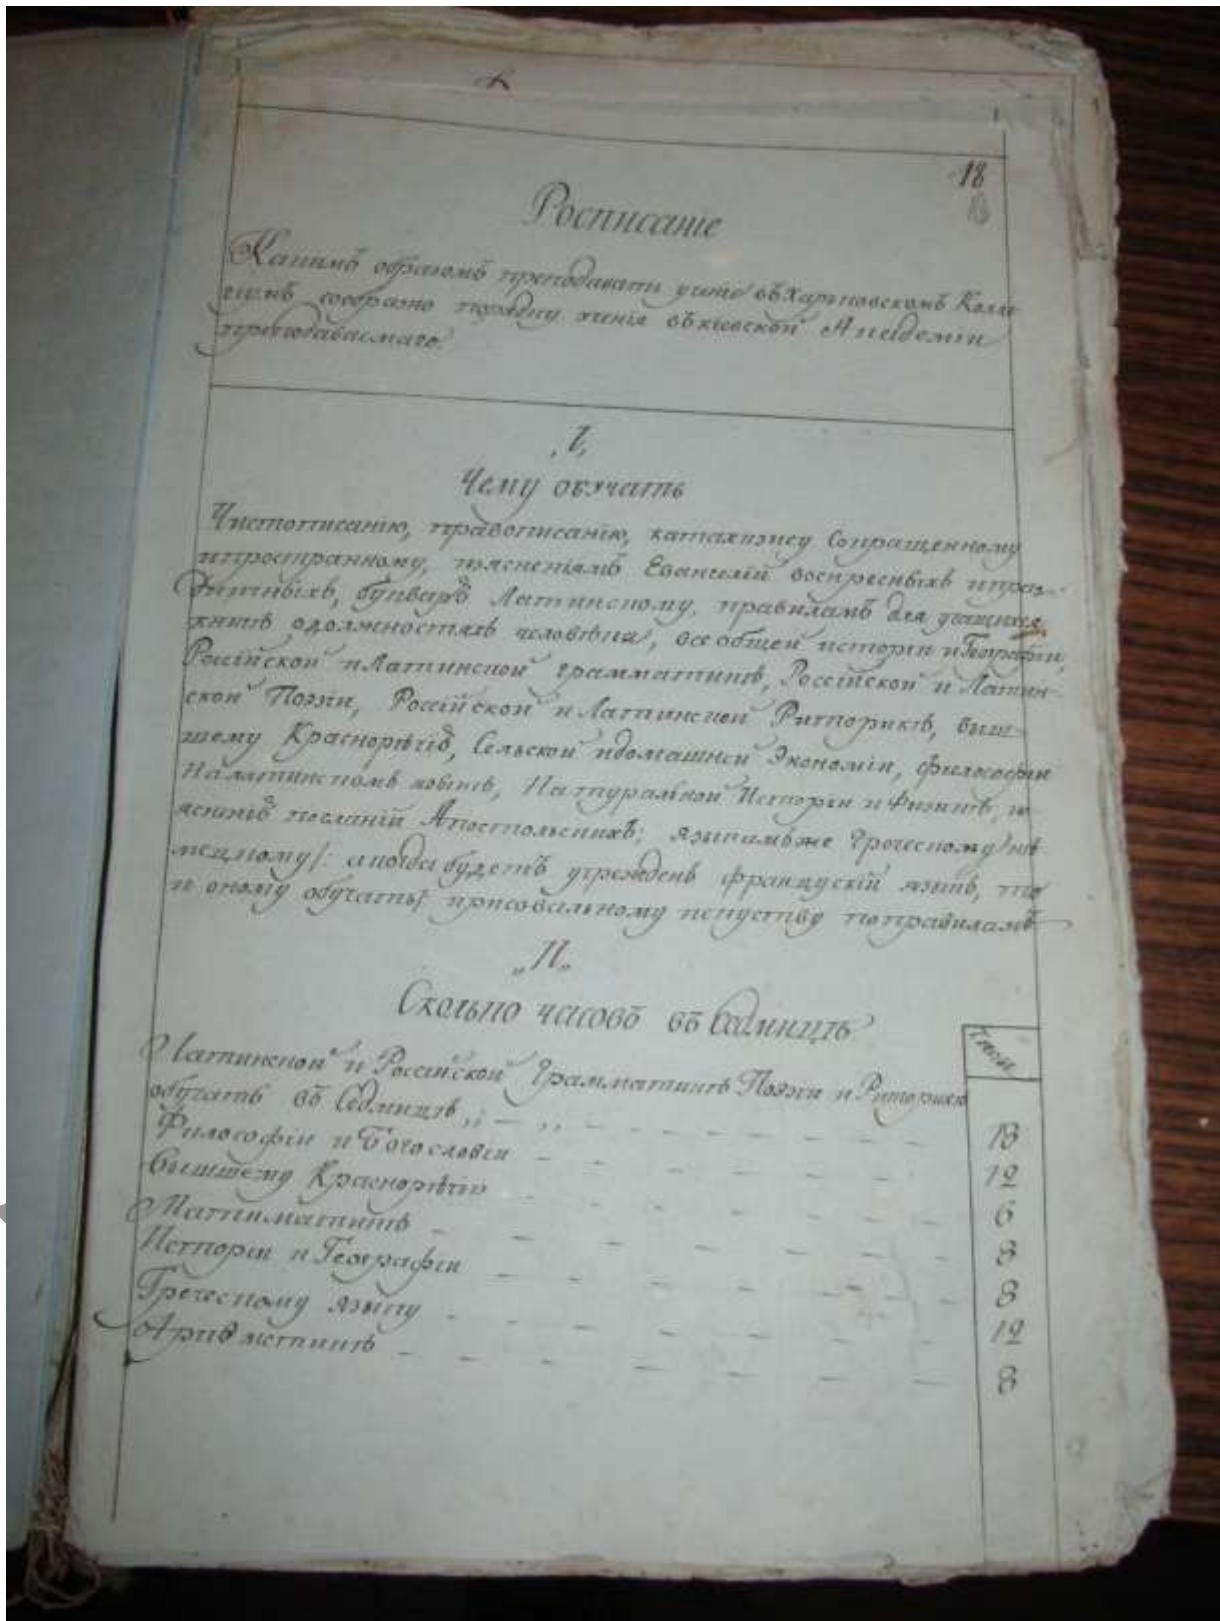 18
Росписаніе
Какимъ образомъ преподавать ученіе въ Харьковскомъ Колле-
гіумѣ сообразно порядку ученія въ кіевской Академіи
преподаваемаго.
„I„
Чему обучать
Чистописанію, правописанію, катахизису Сокращенному
и пространному, изясненіямъ Евангелій воскресныхъ и праз-
дничныхъ, букварю Латинскому, правиламъ для учащихся,
книгѣ о должностяхъ человѣка, всеобщей исторіи и Географіи,
Россійской и Латинской грамматикѣ, Россійской и Латин-
ской Поэзіи, Россійской и Латинской Риторикѣ, выш-
шему Краснорѣчію, Сельской и домашней Экономіи, философіи
На латинскомъ языкѣ, Натуральной Исторіи и Физикѣ, из-
ясненію посланій Апостольскихъ; языкамъ же Греческому, нѣ-
мецкому /: а когда будетъ учрежденъ французскій языкъ, то
и оному обучать :/ и рисовальному искуству по правиламъ
„II„
Сколько часовъ въ Седмицѣ
Часы
Латинской и Россійской Грамматикѣ Поэзіи и Риторикѣ
обучать въ Седмицѣ „ — „ — — — — — — 18
Философіи и Богословіи — — — — — — 12
Вышшему Краснорѣчію — — — — — — 6
Матиматикѣ — — — — — — — 8
Исторіи и Географіи — — — — — — 8
Греческому языку — — — — — — 12
Ариѳметикѣ — — — — — — — 8